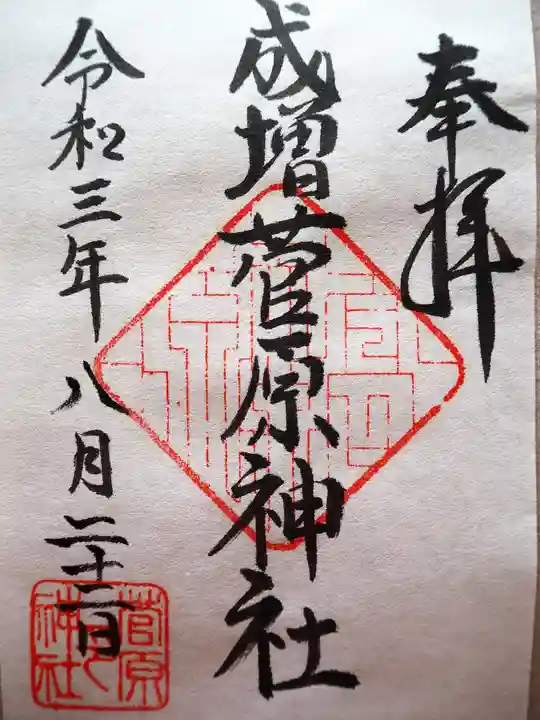 奉拝
成増菅原神社
令和三年八月二十二日
菅原
神社